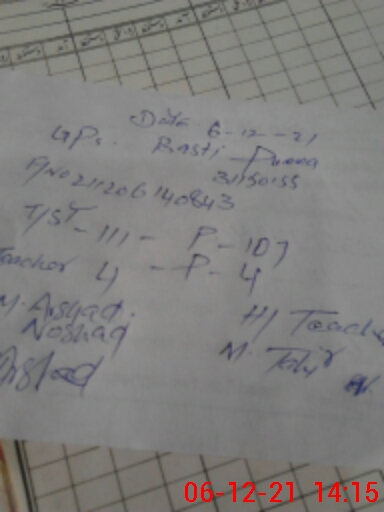 Date 6-12-21
GPs. Basti
31150155
A/No 211206140843
T/ST - 111 - P - 107
Teacher 4 - P - 4
M. Arshad. H/ Teach
Noshad M.
06-12-21 14:15